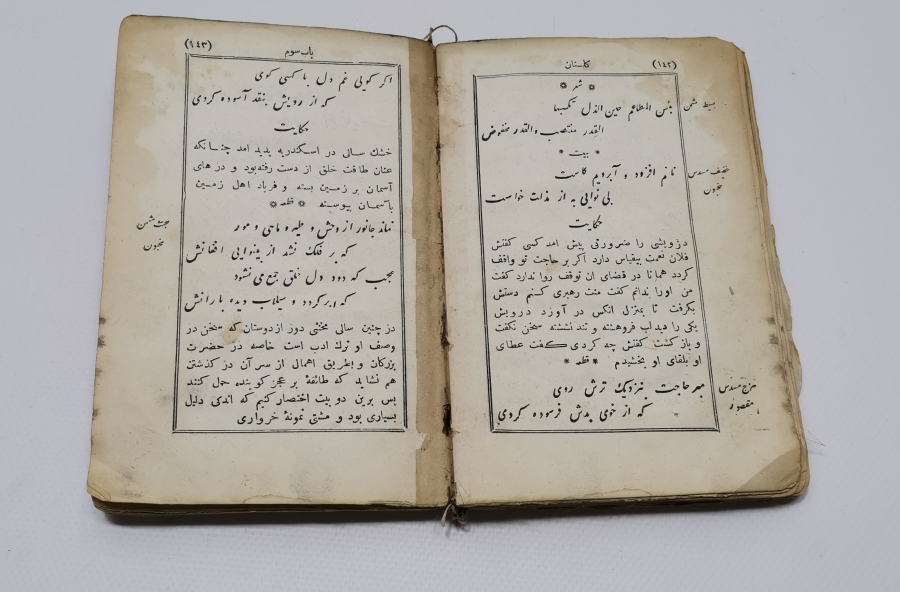 (١٤٢) کلستان
* شعر *
بئس المطاعم حین الذل تکسبها
القدر منتصب والقدر مخفوض
بسیط مثمن
* بیت *
نانم افزود و آبرویم کاست
بی نوایی به از مذلت خواست
خفیف مسدس
مخبون
حکایت
درویشی را ضرورتی پیش امد کسی کفتش
فلان نعمت بیقیاس دارد اکر بر حاجت تو واقف
کردد همانا در قضای ان توقف روا ندارد کفت
من اورا ندانم کفت منت رهبری کنم دستش
بکرفت تا بمنزل انکس در آورد درویش
یکی را دید لب فروهشته و تند نشسته سخن نکفت
و باز کشت کفتش چه کردی کفت عطای
او بلقای او بخشیدم * قطعه *
مبر حاجت بنزدیک ترش روی
که از خوی بدش فرسوده کردی
هزج مسدس
مقصور
باب سوم (١٤٣)
اکر کویی غم دل با کسی کوی
که از رویش بنقد آسوده کردی
حکایت
خشك سالی در اسکندریه پدید امد چنانکه
عنان طاقت خلق از دست رفته بود و درهای
آسمان بر زمین بسته و فریاد اهل زمین
با آسمان پیوسته * قطعه *
نماند جانور از وحش و طیر و ماهی و مور
که بر فلک نشد از بینوایی افغانش
عجب که دود دل خلق جمع می نشود
که ابر کردد و سیلاب دیده بارانش
مجتث مثمن
مخبون
در چنین سالی مخنثی دور از دوستان که سخن در
وصف او ترك ادب است خاصه در حضرت
بزرکان و بطریق اهمال از سر آن در کذشتن
هم نشاید که طائفهٔ بر عجز کوینده حمل کنند
پس برین دو بیت اختصار کنیم که اندکی دلیل
بسیاری بود و مشتی نمونهٔ خرواری